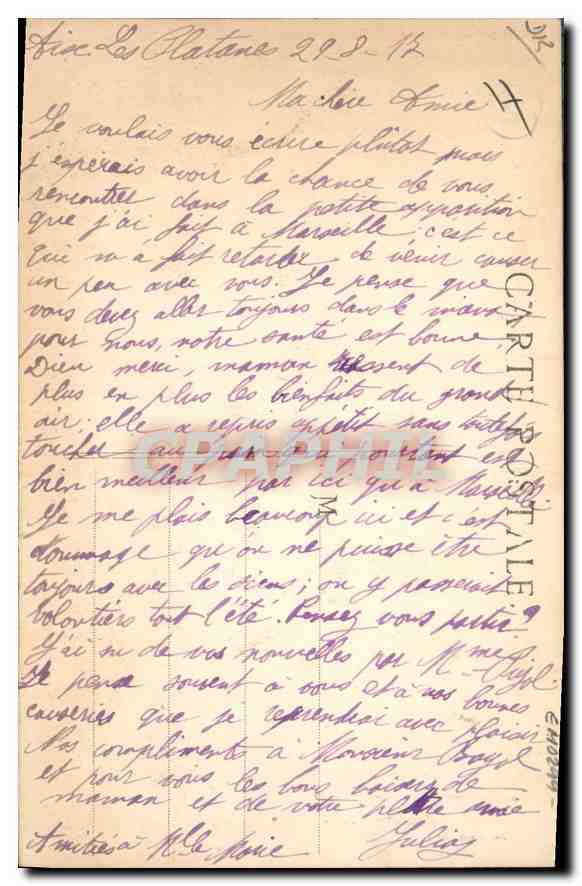 Aix. Les Platanes 29-8-17
Ma chère Amie
Je voulais vous écrire plûtot mais
j'espérais avoir la chance de vous
rencontrer dans la petite apparition
que j'ai fait à Marseille; c'est ce
qui m'a fait retarder de venir causer
un peu avec vous. Je pense que
vous devez aller toujours dans le mieux
pour nous, notre santé est bonne,
Dieu merci, maman ressent de
plus en plus les bienfaits du grand
air; elle a repris appétit sans toutefois
toucher au pain qui pourtant est
bien meilleur par ici qu'à Marseille
Je me plais beaucoup ici et c'est
dommage qu'on ne puisse être
toujours avec les siens; on y passerait
volontiers tout l'été. Pensez vous partir?
J'ai eu de vos nouvelles par Mme
Je pense souvent à vous et à vos bonnes
causeries que je reprendrai avec plaisir
Nos compliments à Monsieur
et pour vous les bons baisers de
maman et de votre petite amie
Amitiés à Mlle Marie
Julia
CARTE POSTALE
M
CPARHIL